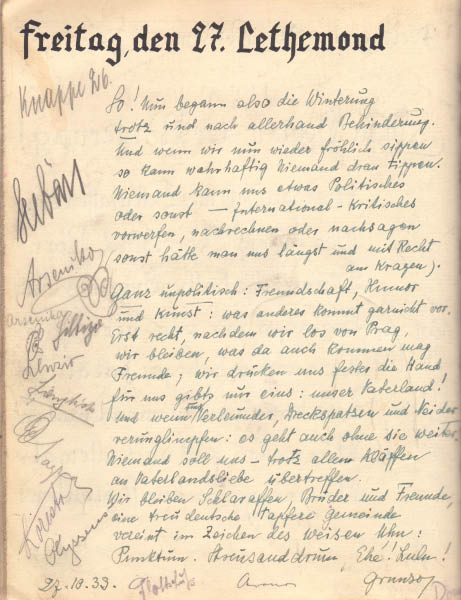 Freitag, den 27. Lethemond
Knappe 26.
So! Nun begann also die Winterung
trotz und nach allerhand Behinderung.
Und wenn wir nun wieder fröhlich sippen
so kann wahrhaftig Niemand dran tippen.
Niemand kann uns etwas Politisches
oder sonst – International-Kritisches
vorwerfen, nachrechnen oder nachsagen
sonst hätte man uns längst und mit Recht
am Kragen).
Ganz unpolitisch: Freundschaft, Humor
und Kunst: was anderes kommt garnicht vor.
Erst recht, nachdem wir los von Prag,
wir bleiben, was da auch kommen mag
Freunde; wir drücken uns fester die Hand
für uns gibts nur eins: unser Vaterland!
Und wenn uns Verleumder, Dreckspatzen und Neider
verunglimpfen: es geht auch ohne sie weiter.
Niemand soll uns – trotz allem Kläffen
an Vaterlandsliebe übertreffen.
Wir bleiben Schlaraffen, Brüder und Freunde,
eine treu deutsche tapfere Gemeinde
vereint im Zeichen des weisen Uhu:
Punktum. Streusand drum, Ehe! Lulu!
Arseniko
Arseniko
27.10.33.